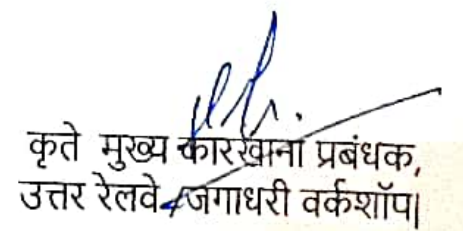 कृते मुख्य कारखाना प्रबंधक,
उत्तर रेलवे, जगाधरी वर्कशॉप।